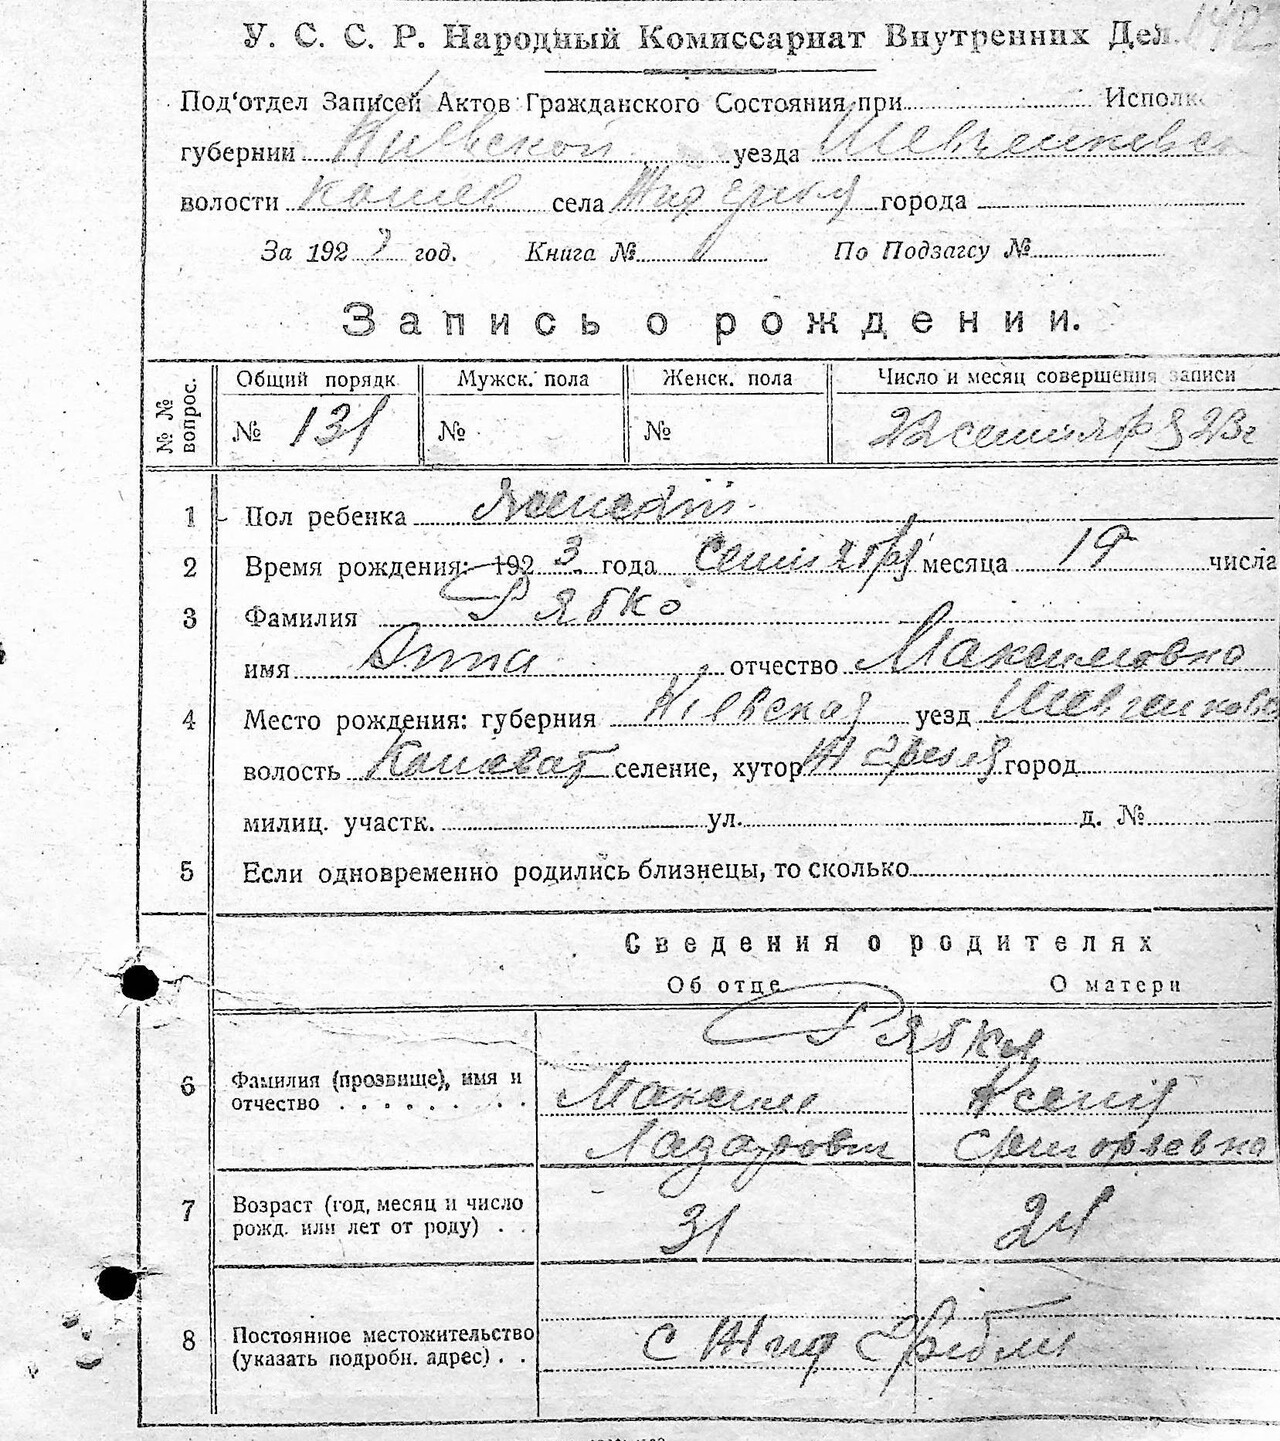 У. С. С. Р. Народный Комиссариат Внутренних Дел.
Под‘отдел Записей Актов Гражданского Состояния при Исполк
губернии Киевской уезда Шевченковск
волости Кошев села города
За 192 год. Книга № По Подзагсу №
Запись о рождении.
№ № вопрос. Общий порядк Мужск. пола Женск. пола Число и месяц совершения записи
№ 131 № № 22 сентября 23 г
1 Пол ребенка Женский
2 Время рождения: 1923 года Сентября месяца 19 числа
3 Фамилия Рябко
имя Анна отчество Максимовна
4 Место рождения: губерния Киевская уезд Шевченковск
волость Кошеват селение, хутор город
милиц. участк. ул. д. №
5 Если одновременно родились близнецы, то сколько
Сведения о родителях
Об отце О матери
Рябки
6 Фамилия (прозвище), имя и
отчество Максим Ксения
Лазарович Григорьевна
7 Возраст (год, месяц и число
рожд. или лет от роду) 31 24
8 Постоянное местожительство
(указать подробн. адрес) с Жид Гребли